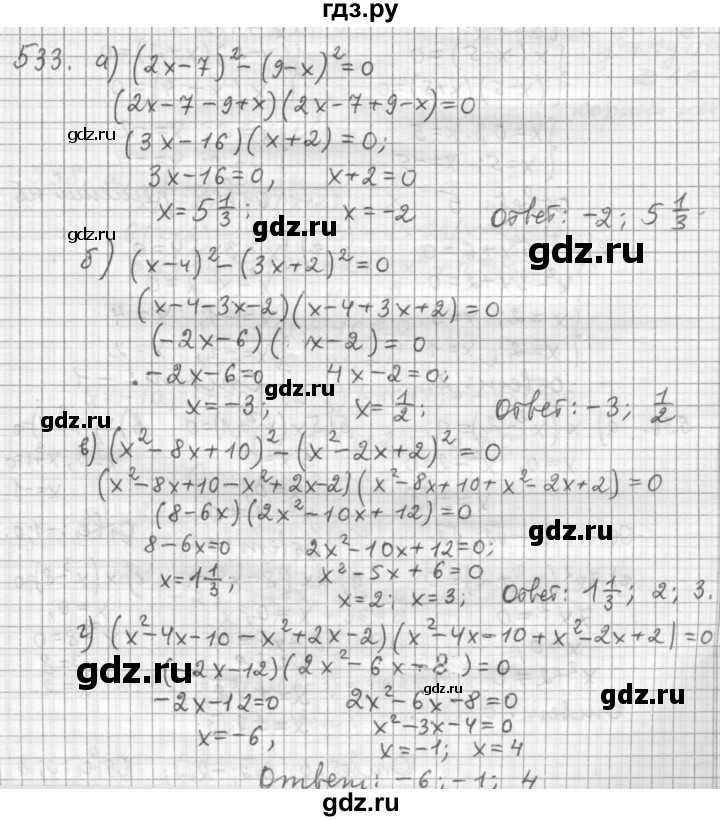 гдз.ру
533. а) (2x-7)²-(9-x)²=0
(2x-7-9+x)(2x-7+9-x)=0
gdz.ru
(3x-16)(x+2)=0;
3x-16=0, x+2=0
x=5 1/3; x=-2 Ответ: -2; 5 1/3.
gdz.ru
gdz.ru
gdz.ru
б) (x-4)²-(3x+2)²=0
(x-4-3x-2)(x-4+3x+2)=0
(-2x-6)( x-2)=0
-2x-6=0 4x-2=0;
gdz.ru
x=-3; x=1/2; Ответ: -3; 1/2
gdz.ru
в) (x²-8x+10)²-(x²-2x+2)²=0
(x²-8x+10-x²+2x-2)(x²-8x+10+x²-2x+2)=0
(8-6x)(2x²-10x+12)=0
gdz.ru
8-6x=0 2x²-10x+12=0;
x=1 1/3; x²-5x+6=0
x=2; x=3; Ответ: 1 1/3; 2; 3.
г) (x²-4x-10-x²+2x-2)(x²-4x-10+x²-2x+2)=0
gdz.ru
( 2x-12)(2x²-6x-8)=0
gdz.ru
gdz.ru
-2x-12=0 2x²-6x-8=0
x=-6, x²-3x-4=0
x=-1; x=4
Ответ: -6; -1; 4
gdz.ru